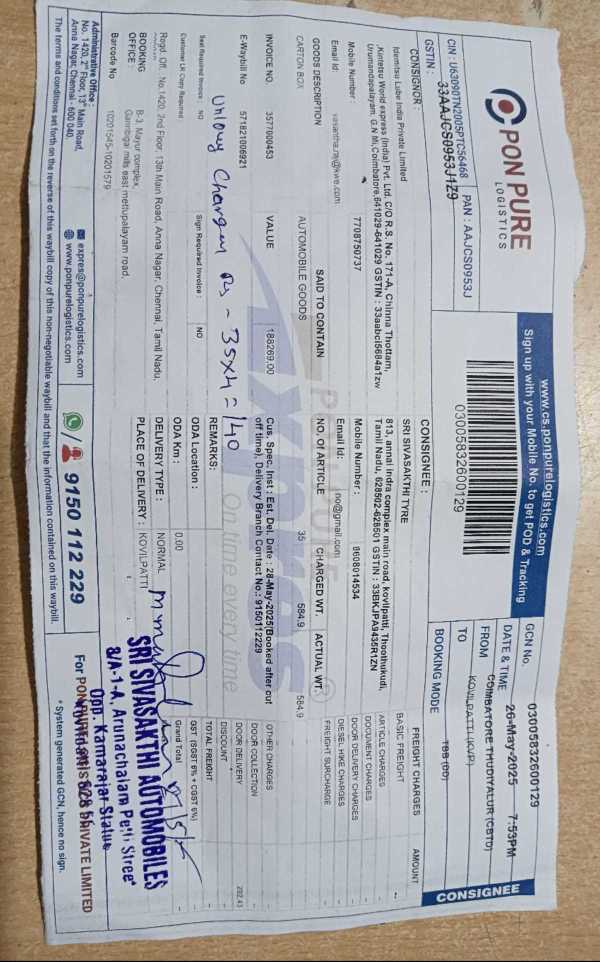 PON PURE
LOGISTICS
CIN : U63090TN2005PTC56468
PAN : AAJCS0953J
GSTIN : 33AAJCS0953J1Z9
www.cs.ponpurelogistics.com
Sign up with your Mobile No. to get POD & Tracking
03005832600129
GCN No. 03005832600129
DATE & TIME 26-May-2025 7:53PM
FROM COIMBATORE THUDIYALUR (CBTD)
TO KOVILPATTI (KVP)
BOOKING MODE
CONSIGNEE
CONSIGNOR :
Idemitsu Lube India Private Limited
,Kintetsu World express (India) Pvt. Ltd. C/O R.S. No. 171-A, Chinna Thottam,
Urumandapalayam, G.N Mi,Coimbatore,641029-641029 GSTIN : 33aabci5684a1zw
Mobile Number : 7708750737
Email Id: vasantha.raj@kwe.com
CONSIGNEE :
SRI SIVASAKTHI TYRE
813, annai indra complex main road, kovilpatti, Thoothukudi,
Tamil Nadu, 628502-628501 GSTIN : 33BKJPA9435R1ZN
Mobile Number : 8608014534
Email Id: no@gmail.com
GOODS DESCRIPTION SAID TO CONTAIN NO. OF ARTICLE CHARGED WT. ACTUAL WT.
CARTON BOX AUTOMOBILE GOODS 35 584.9 584.9
INVOICE NO. 3577000453 VALUE 188269.00
E-Waybill No 571821006921
Cus. Spec. Inst : Est. Del. Date : 28-May-2025(Booked after cut
off time), Delivery Branch Contact No.: 9150112229
REMARKS:
Unloay Charges Rs - 35x4 = 140
Seal Required Invoice : NO Sign Required Invoice : NO
Customer LR Copy Required :
ODA Location :
ODA Km : 0.00
DELIVERY TYPE : NORMAL
PLACE OF DELIVERY : KOVILPATTI
FREIGHT CHARGES AMOUNT
BASIC FREIGHT -
ARTICLE CHARGES
DOCUMENT CHARGES
DOOR DELIVERY CHARGES
DIESEL HIKE CHARGES
FREIGHT SURCHARGE
OTHER CHARGES
DOOR COLLECTION
DOOR DELIVERY 292.43
DISCOUNT -
TOTAL FREIGHT -
GST (SGST 6% + CGST 6%) -
Grand Total -
PON PURE
Xpress
On time every time
Regd. Off. No.1420, 2nd Floor, 13th Main Road, Anna Nagar, Chennai, Tamil Nadu,
BOOKING OFFICE : B-3, Mayur complex,
Gambigai mills east mettupalayam road,
Barcode No 10201545-10201579
SRI SIVASAKTHI AUTOMOBILES
8/A-1-A, Arunachalam Petti Street
Opp. Kamarajar Statue
For PON PURE LOGISTICS PRIVATE LIMITED
* System generated GCN, hence no sign.
Administrative Office :
No. 1420, 2nd Floor, 13th Main Road,
Anna Nagar, Chennai - 600 040.
expres@ponpurelogistics.com
www.ponpurelogistics.com
9150 112 229
The terms and conditions set forth on the reverse of this waybill copy of this non-negotiable waybill and that the information contained on this waybill.